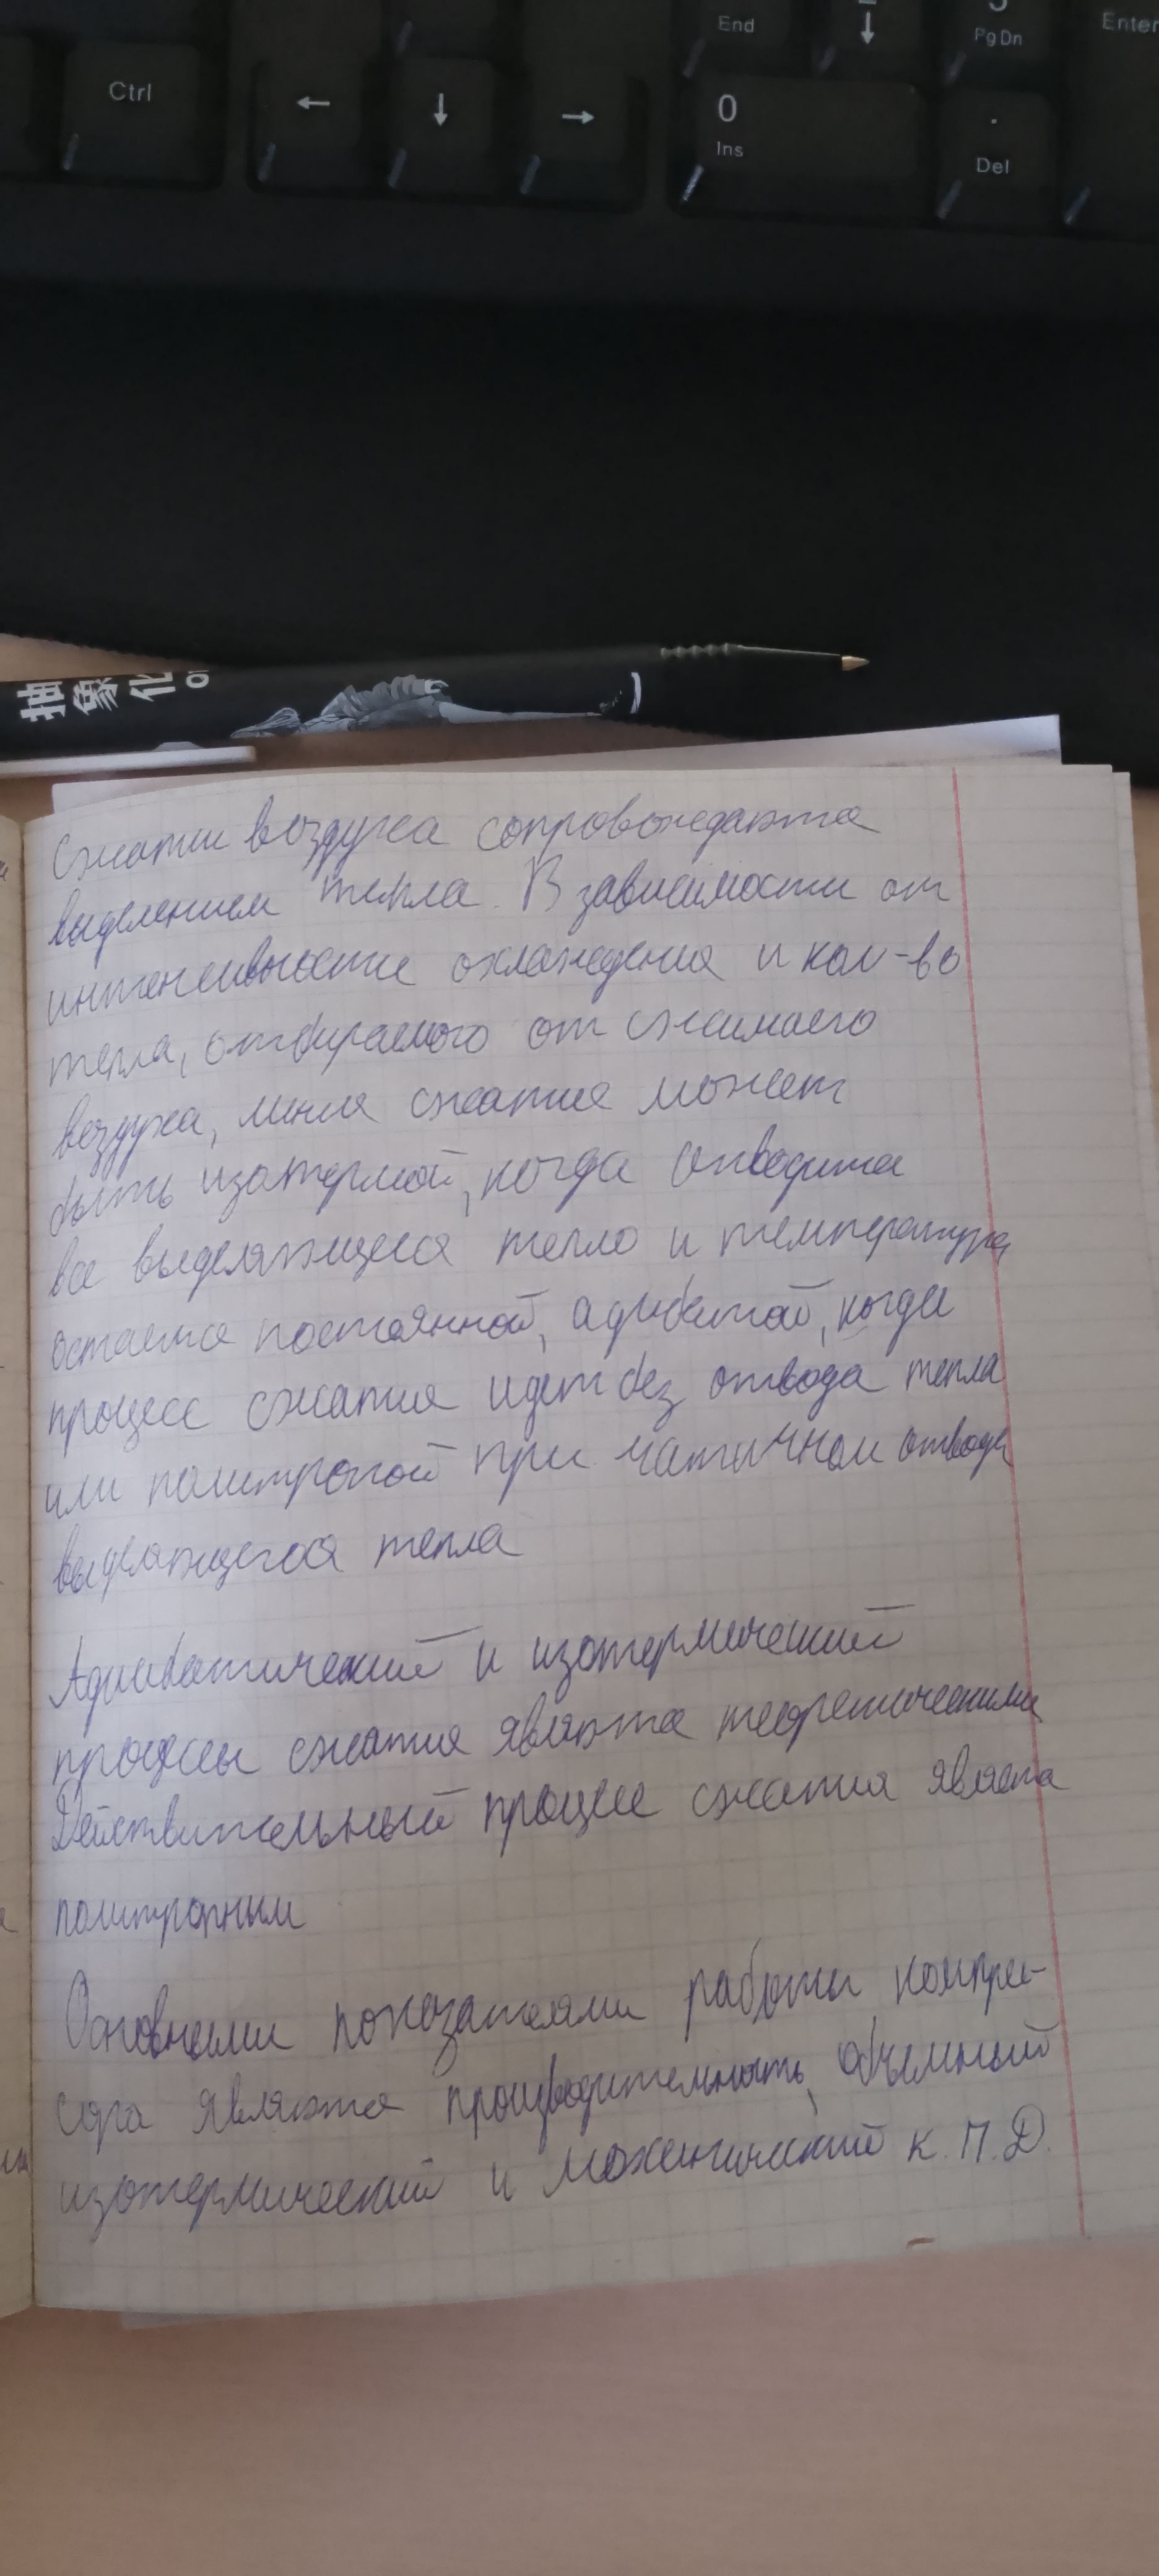 Ctrl
←
↓
→
End
↓
Pg Dn
Enter
0
Ins
.
Del
抽象化
Сжатие воздуха сопровождается
выделением тепла. В зависимости от
интенсивности охлаждения и кол-во
тепла, отбираемого от сжимаего
воздуха, линия сжатия может
быть изотермой, когда отводится
все выделяющееся тепло и температура
остается постоянной, адиабатой, когда
процесс сжатия идет без отвода тепла
или политропой при частичном отводе
выделяющегося тепла
Адиабатический и изотермический
процессы сжатия являются теоретическими
Действительный процесс сжатия является
политропным
Основными показателями работы компрес-
сора являются производительность, объемный
изотермический и механический к.П.Д.